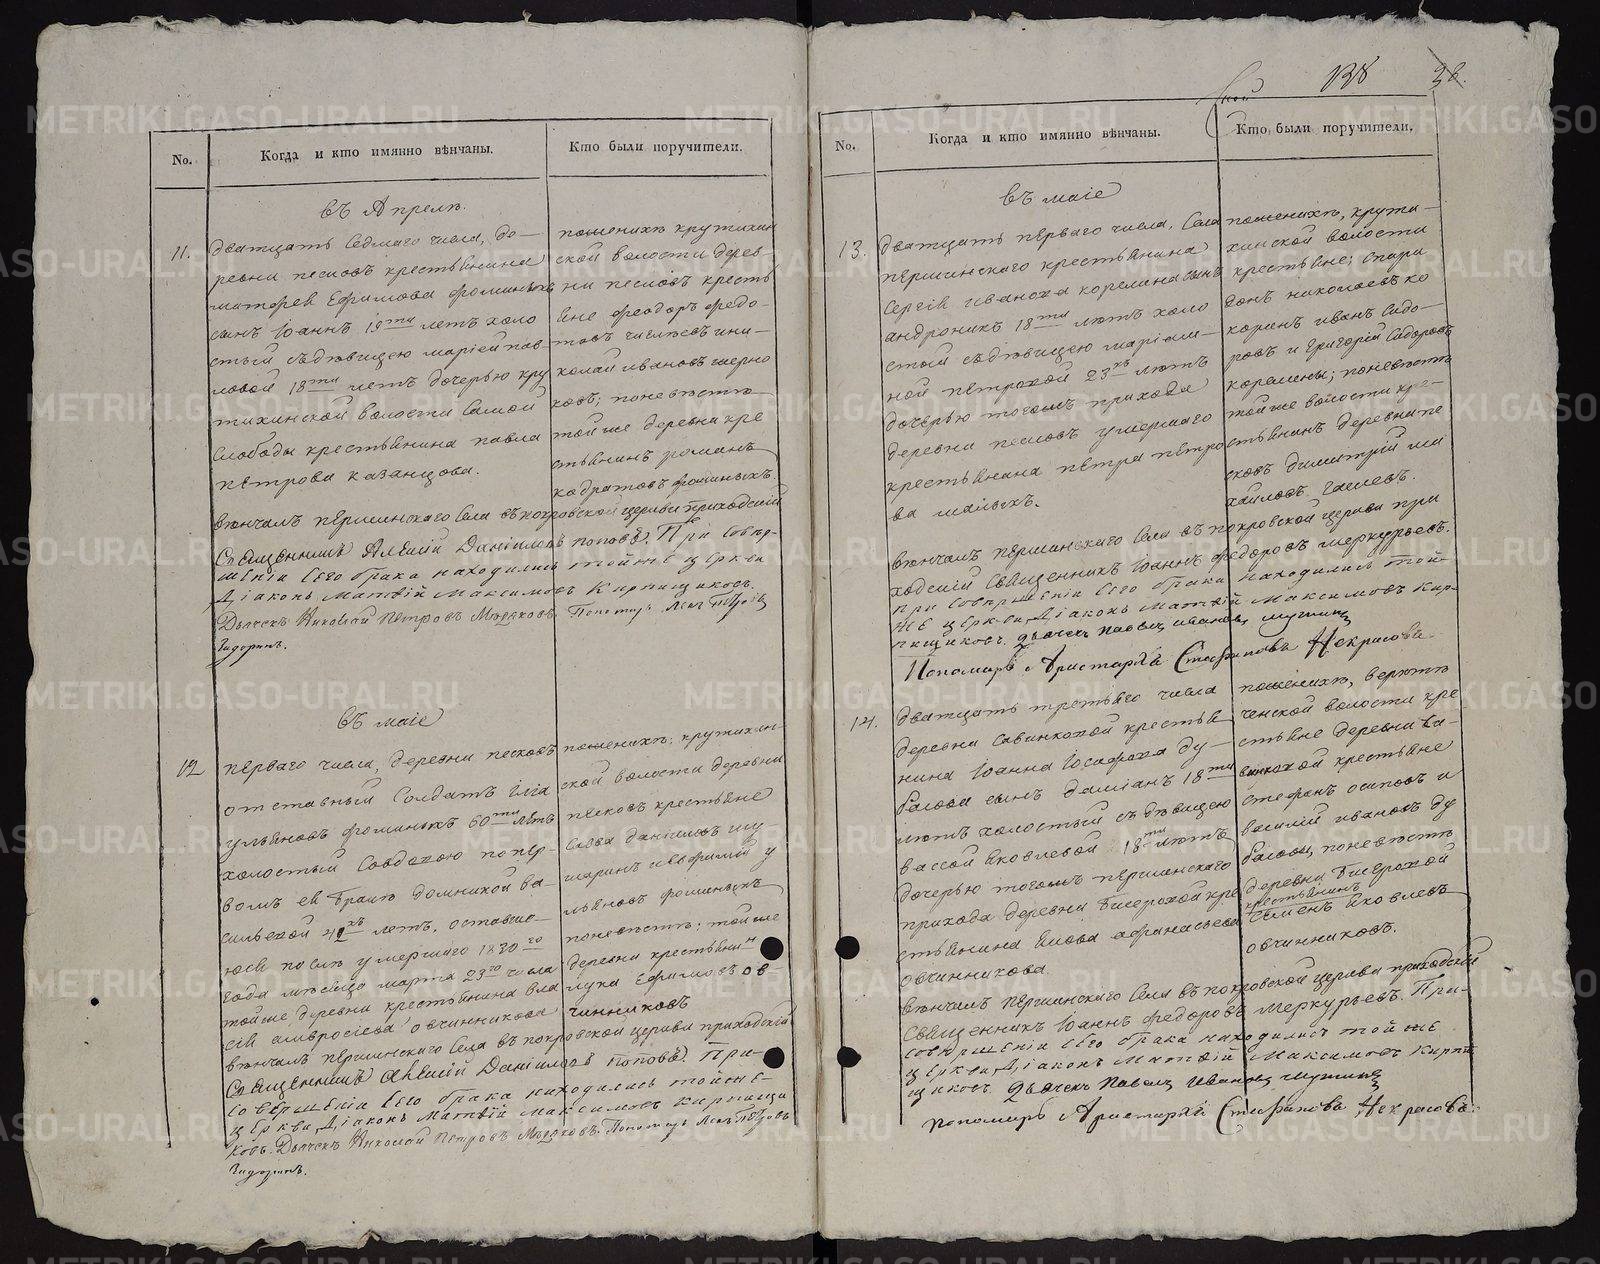 138
38.
No.
Когда и кто имянно вѣнчаны.
Кто были поручители.
въ Апрелѣ.
11.
дватцать седмаго числа, де-
ревни песковъ крестьянина
матфея Ефимова фоминыхъ
сынъ Іоаннъ 18ти летъ холо
стый съ дѣвицею маріей пав
ловой 18ти летъ дочерью кру
тихинской волости самой
слободы крестьянина павла
петрова казанцова.
пожених крутихин
ской волости дерев-
ни песковъ кресть
яне феодоръ федо-
товъ и ни-
колай ивановъ
ковъ; поневѣсте
той же деревни кре
стьянинъ романъ
кодратовъ фоминыхъ.
вѣнчалъ першинскаго села въ покровской церкви приходскій
Священникъ Алексій Даніиловъ поповъ. При совер-
шеніи сего брака находились тойже церкви
Діаконъ Матвій Максимовъ Кирпищиковъ.
Дьячекъ Николай Петровъ Пономарь
въ маіе
12
перваго числа, деревни песковъ
отставный солдатъ ілія
ульяновъ фоминыхъ 60ти летъ
холостый совдовою попер-
вомъ ея бракѣ домникой ва-
сильевой летъ, оставше-
юся послѣ умершаго 1830го
года месяца марта 23го числа
тойже деревни крестьянина вла
сія амвросіева овчинникова
пожених: крутихин-
ской волости деревни
песковъ крестьяне
савва даніиловъ шу-
шаринъ иевфимій у
льяновъ фоминыхъ
поневѣсте: тойже
деревни крестьянин
лука Ефимовъ ов-
чинниковъ
вѣнчалъ першинскаго села въ покровской церкви приходскій
Священникъ Алексій Даніиловъ поповъ. При
совершеніи сего брака находились тойже
церкви, Діаконъ Матвій Максимовъ Кирпищи
ковъ. Дьячекъ Николай Петровъ Пономарь
No.
Когда и кто имянно вѣнчаны.
Кто были поручители.
въ маіе
13.
дватцать перваго числа, села
першинскаго крестьянина
Сергія иванова корелина сынъ
андроникъ 18ти летъ холо
стой съ дѣвицею маріами-
ной петровой 23хъ летъ
дочерью тогожъ прихода
деревни песковъ умершаго
крестьянина петра петро
ва малыхъ.
пожених, крути-
хинской волости
крестьяне; спири
донъ николаевъ ко
коринъ иванъ сидо-
ровъ и григорій сидоровъ
корелины; поневѣсте
тойже волости кре-
стьянинъ деревни пе
сковъ димитрій ми
хаиловъ
вѣнчалъ першинскаго села въ покровской церкви при
ходскій священникъ Іоаннъ федоровъ меркурьевъ.
при совершеніи сего брака находились той-
же церкви, Діаконъ Матвій Максимовъ Кир-
пищиковъ. Дьячекъ Павелъ Ивановъ
Пономарь Аристархъ Стефановъ Некрасовъ
14.
дватцать третьяго числа
деревни савинковой крестья
нина Іоанна Іосафова ду-
басова сынъ даміанъ 18ти
летъ холостый съ дѣвицею
вассой яковлевой 18ти летъ
дочерью тогожъ першинскаго
прихода деревни бисеровой кре
стьянина якова афанасьева
овчинникова.
пожених, верхтѣ
ченской волости кре
стьяне деревни са-
винковой крестьяне
стефанъ осиповъ и
василій ивановъ ду
басовы, поневѣсте
деревни бисеровой
крестьянинъ
семенъ яковлевъ
овчинниковъ.
вѣнчалъ першинскаго села въ покровской церкви приходскій
священникъ Іоаннъ федоровъ меркурьевъ. При-
совершеніи сего брака находились той же
церкви, Діаконъ Матвій Максимовъ Кирпи
щиковъ. Дьячекъ Павелъ Ивановъ
пономарь Аристархъ Стефановъ Некрасовъ.
METRIKI.GASO-URAL.RU